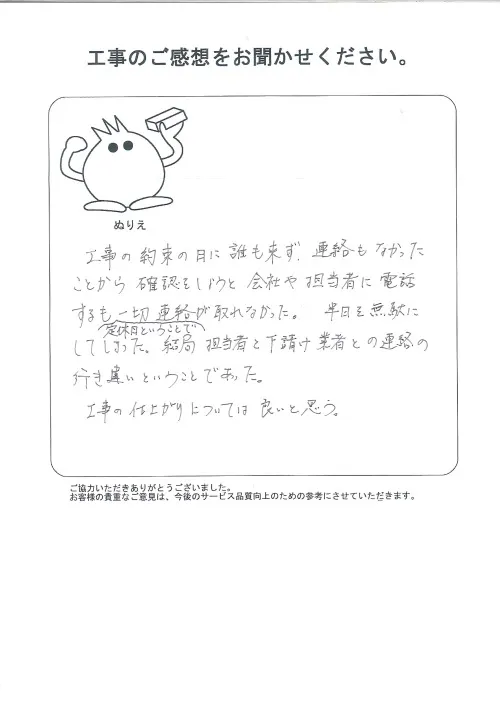 工事のご感想をお聞かせください。
ぬりえ
工事の約束の日に誰も来ず、連絡もなかった
ことから確認をしようと会社や担当者に電話
するも一切連絡が取れなかった。半日を無駄に
定休日ということで
してしまった。結局担当者と下請け業者との連絡の
行き違いということであった。
工事の仕上がりについては良いと思う。
ご協力いただきありがとうございました。
お客様の貴重なご意見は、今後のサービス品質向上のための参考にさせていただきます。